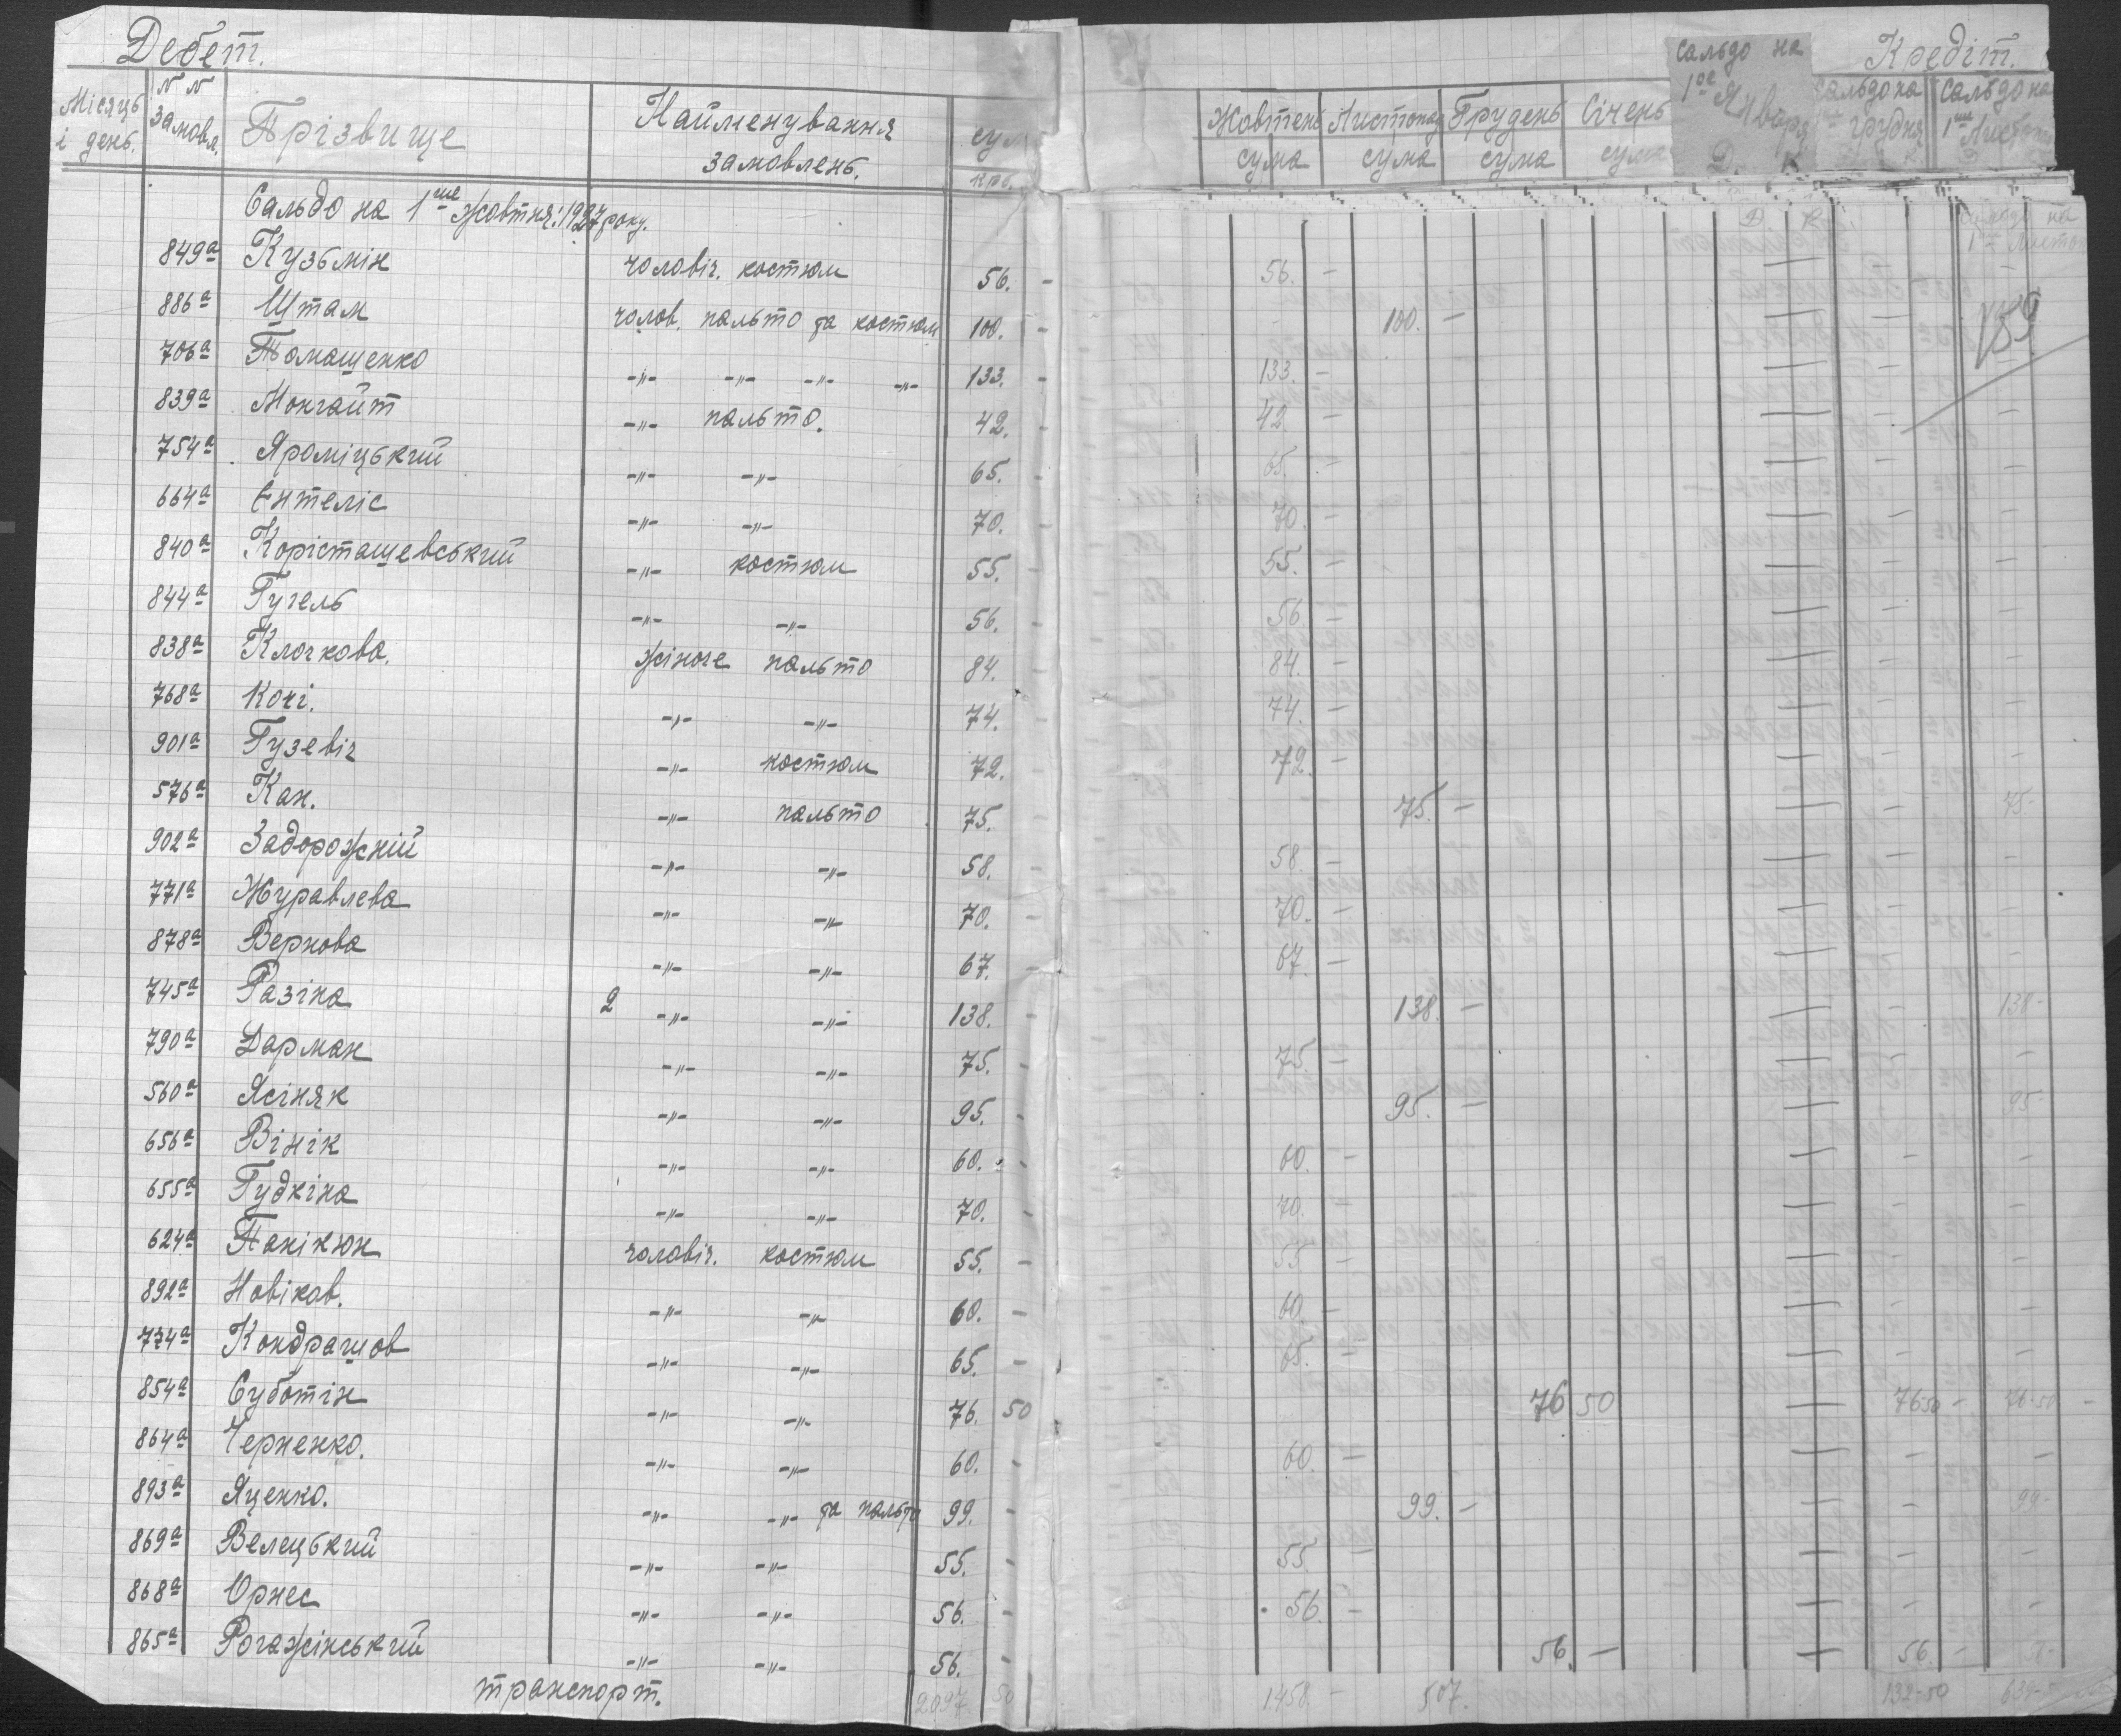 Дебет.
Кредіт.
Місяць і день.
N N замовл.
Прізвище
Найменування замовлень.
сум
крб.
Жовтень сума
Листопад сума
Грудень сума
Січень сума
сальдо на 1ое Января
Д. К
сальдо на грудня
сальдо на 1ше Листоп
Сальдо на 1ше жовтня 1927 року.
Д К
849а Кузьмін чоловіч. костюм 56. - 56. -
886а Штам чолов. пальто та костюм 100. - 100. -
159
706а Томашенко -"- -"- -"- -"- 133. - 133. -
839а Монгайт -"- пальто. 42. - 42 -
754а Яроміцький -"- -"- 65. - 65. -
664а Ентеліс -"- -"- 70. - 70. -
840а Корісташевський -"- костюм 55. - 55. -
844а Гугель -"- -"- 56. - 56 -
838а Клочкова. жіноче пальто 84. - 84. -
768а Кочі. -"- -"- 74. - 74. -
901а Гузевіч -"- костюм 72. - 72. -
576а Кан. -"- пальто 75. 75. - 75-
902а Задорожній -"- -"- 58. - 58 -
771а Журавлева -"- -"- 70. - 70. -
878а Вернова -"- -"- 67. - 67. -
745а Разіна 2 -"- -"- 138. - 138. - 138-
790а Дарман -"- -"- 75. - 75. -
560а Ясіняк -"- -"- 95. - 95. - 95-
656а Вінік -"- -"- 60. - 60. -
655а Гудкіна -"- -"- 70. - 70. -
624а Панікюк чоловіч. костюм 55. - 55 -
892а Новіков. -"- -"- 60. - 60. -
774а Кондрашов -"- -"- 65. - 65. -
854а Суботін -"- -"- 76. 50 76 50 7650 - 76-50 -
864а Черненко. -"- -"- 60. - 60. -
893а Яценко. -"- -"- та пальто 99. - 99. - 99-
869а Велецький -"- -"- 55. - 55 -
868а Орнес -"- -"- 56. - 56. -
865а Рогажінський -"- -"- 56. - 56. - 56. -
транспорт. 2097. 50 1458. - 507. 132-50